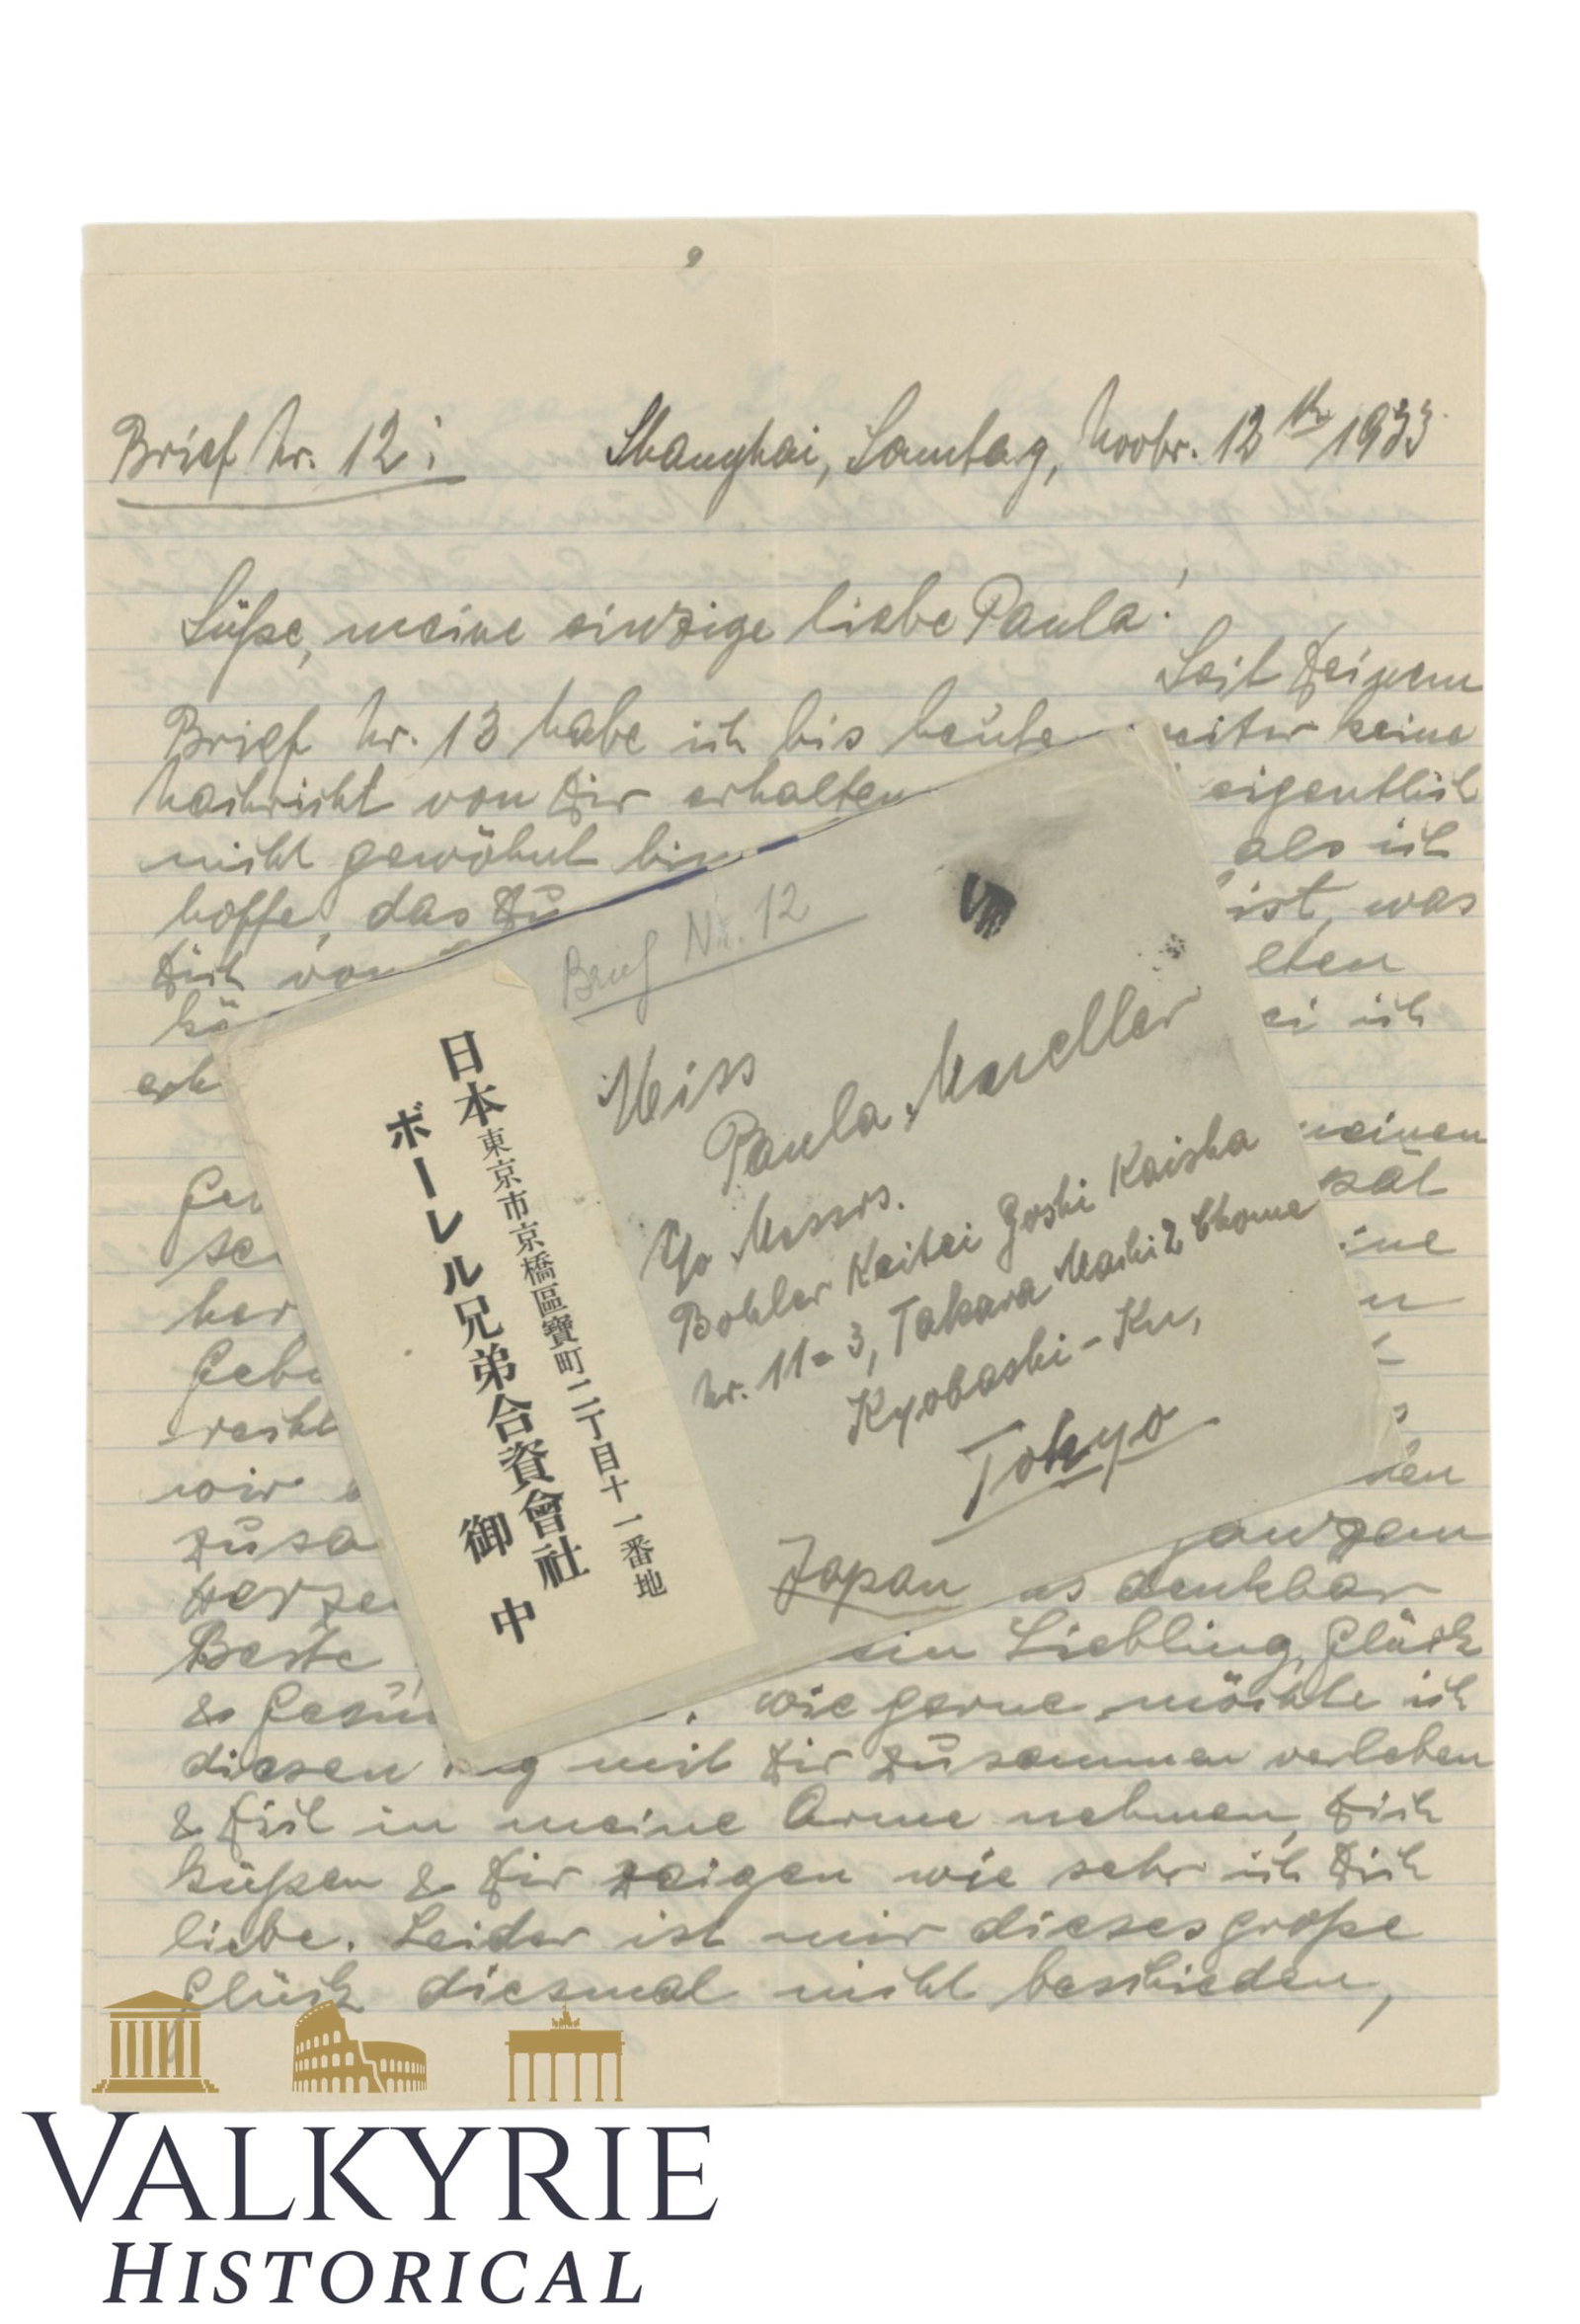 Brief Nr. 12: Shanghai, Sonntag, Novbr. 12th 1933
Süße, meine einzige liebe Paula!
Seit Deinem
Brief Nr. 13 habe ich bis heute weiter keine
Nachricht von Dir erhalten eigentlich
nicht gewöhnt bin als ich
hoffe, das Du ist, was
Dich von elten
kö ei ich
erh
meinen
Geb
se ine
her n
Gebu
recht s
wir den
zusa ganzem
Herze as denkbar
Beste ein Liebling, Glück
& Gesun wie gerne möchte ich
diesen g mit Dir zusammen verleben
& Dich in meine Arme nehmen, Dich
küßen & Dir zeigen wie sehr ich Dich
liebe. Leider ist mir dieses große
Glück diesmal nicht beschieden,
Brief Nr. 12
Miss
Paula Mueller
c/o Messrs.
Bohler Keitei Goshi Kaisha
Nr. 11-3, Takara Machi 2 Chome
Kyobashi-Ku,
Tokyo
Japan
日本東京市京橋區寶町二丁目十一番地
ボーレル兄弟合資會社
御中
VALKYRIE
HISTORICAL